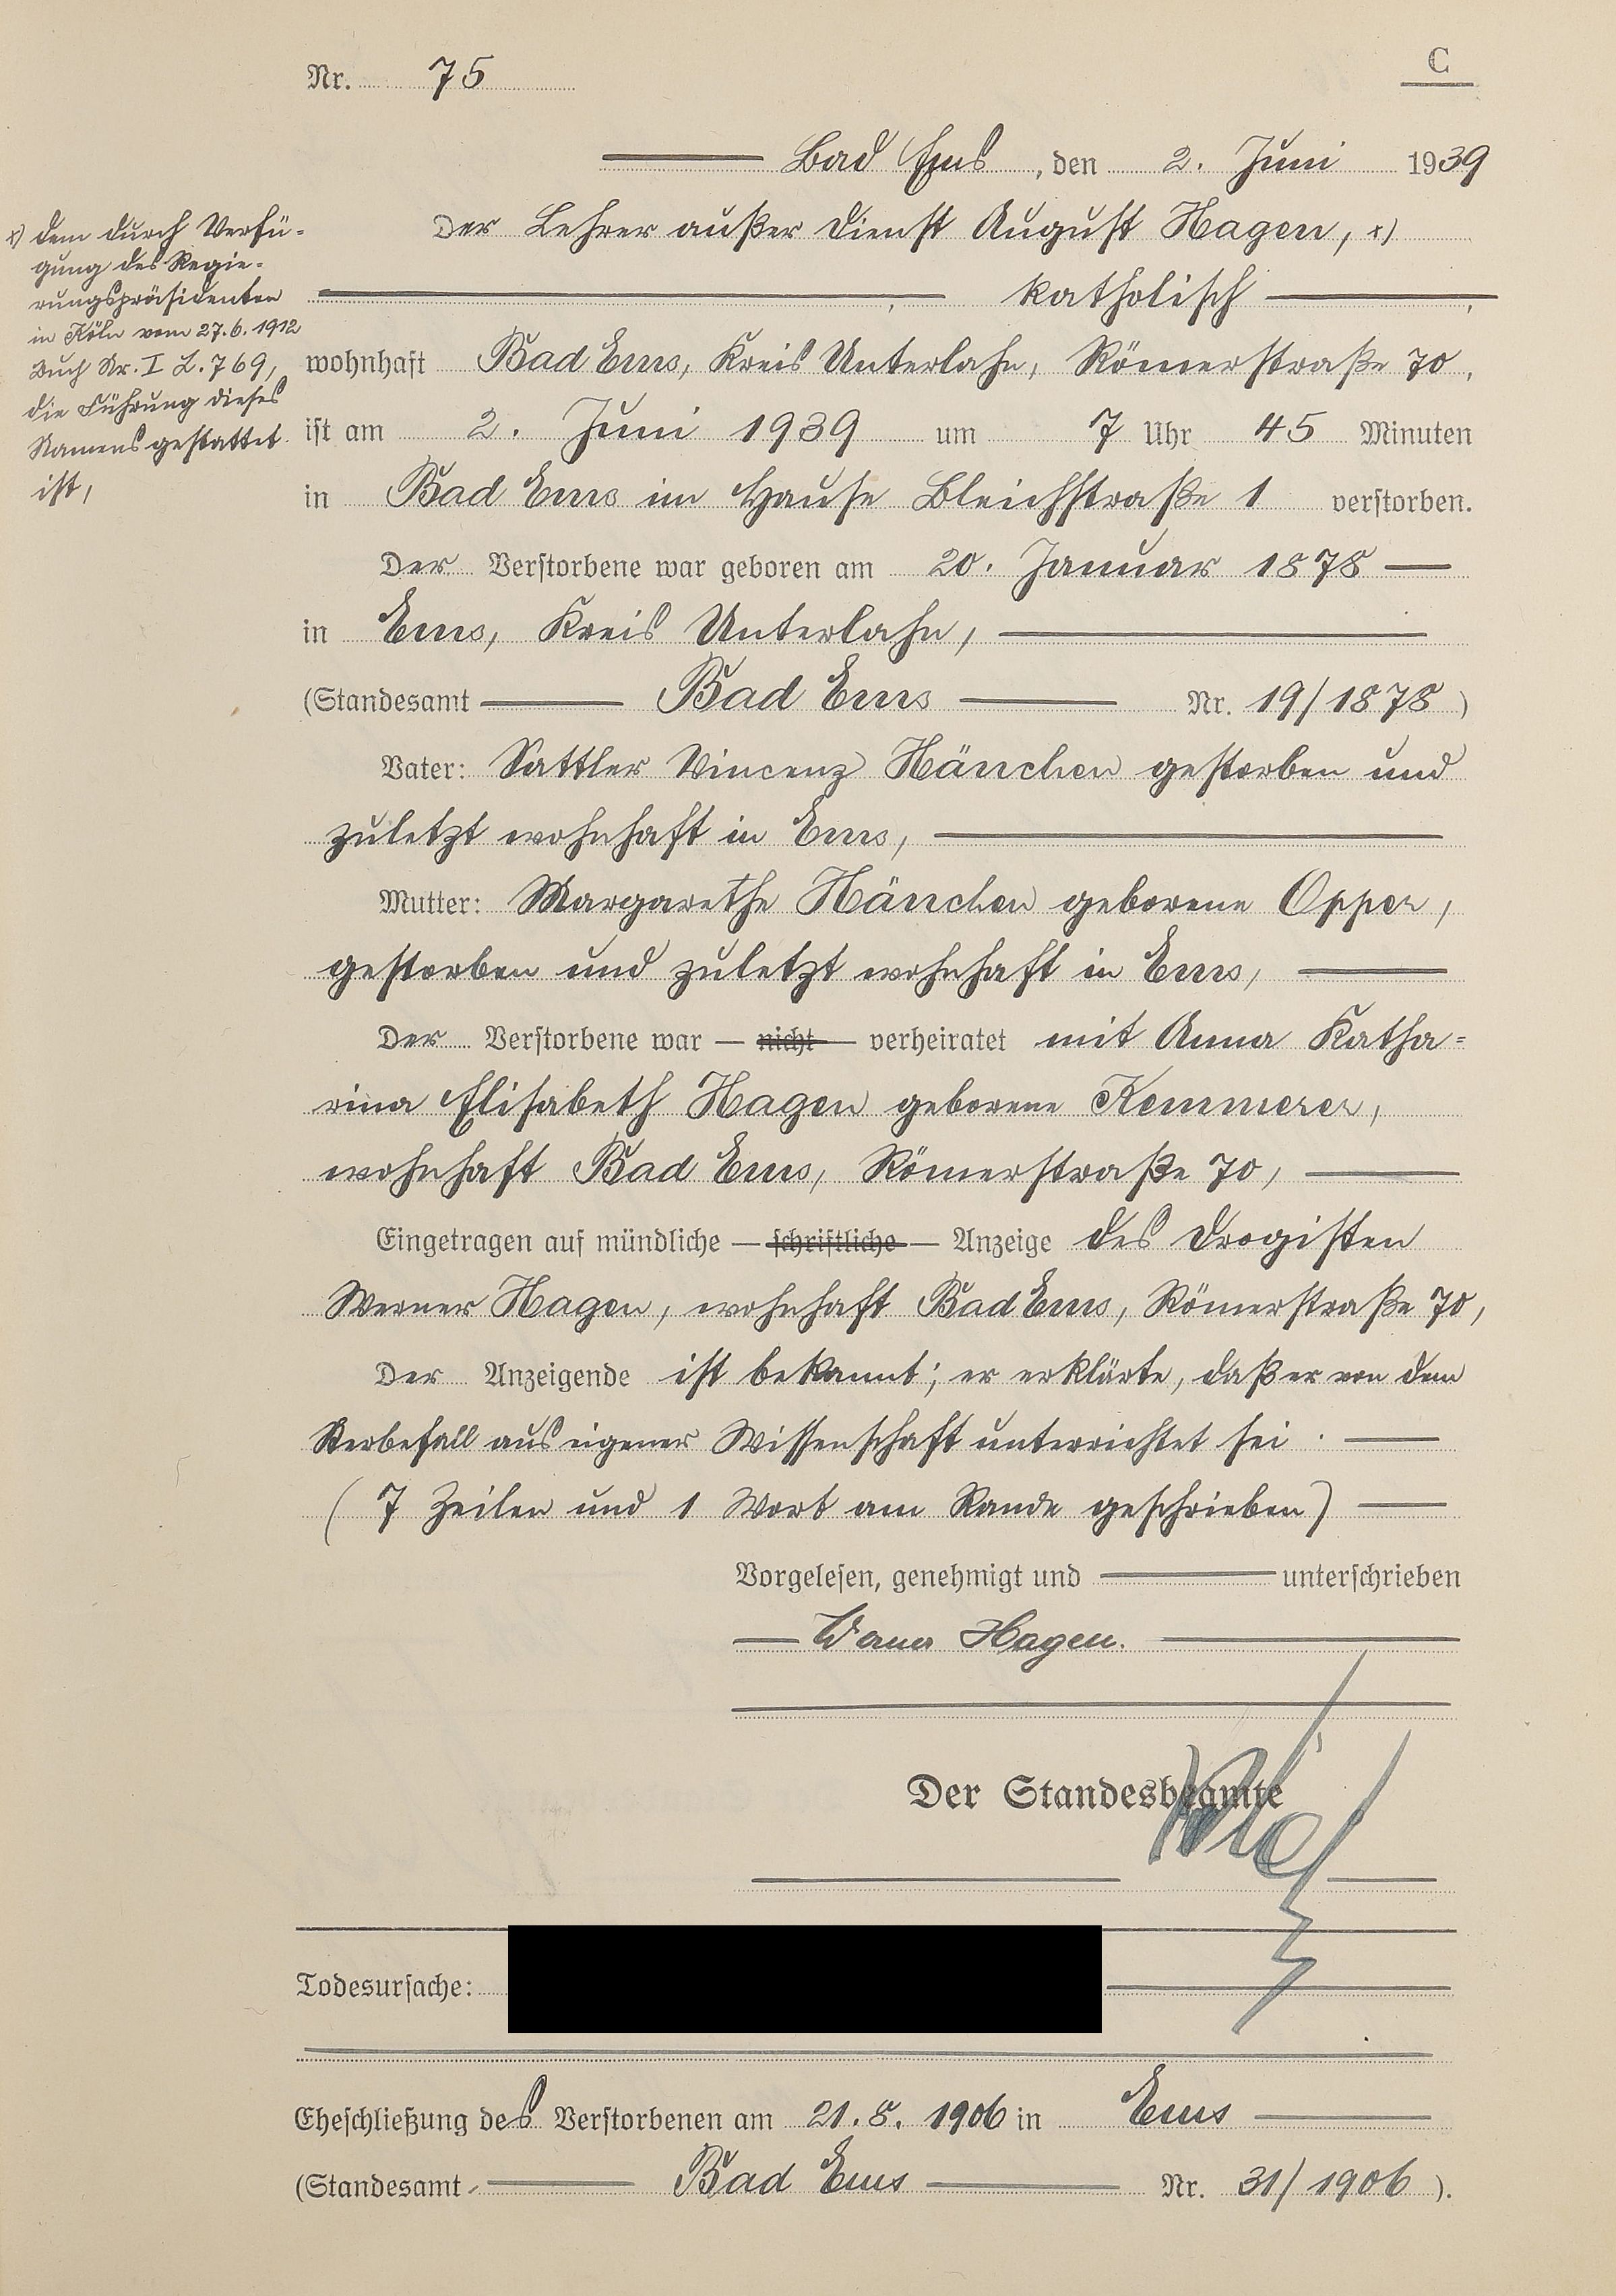 Nr. 75
C
Bad Ems, den 2. Juni 1939
Der Lehrer außer Dienst August Hagen, x)
x) dem durch Verfü-
gung des Regie-
rungspräsidenten
in Köln vom 27.6.1912
Buch Nr. I L. 769,
die Führung dieses
Namens gestattet
ist,
katholisch,
wohnhaft Bad Ems, Kreis Unterlahn, Römerstraße 70,
ist am 2. Juni 1939 um 7 Uhr 45 Minuten
in Bad Ems im Hause Bleichstraße 1 verstorben.
Der Verstorbene war geboren am 20. Januar 1878
in Ems, Kreis Unterlahn,
(Standesamt Bad Ems Nr. 19/1878)
Vater: Sattler Vincenz Hänchen gestorben und
zuletzt wohnhaft in Ems,
Mutter: Margarethe Hänchen geborene Opper,
gestorben und zuletzt wohnhaft in Ems,
Der Verstorbene war — nicht — verheiratet mit Anna Katha=
rina Elisabeth Hagen geborene Kemmerer,
wohnhaft Bad Ems, Römerstraße 70,
Eingetragen auf mündliche — schriftliche — Anzeige des Drogisten
Werner Hagen, wohnhaft Bad Ems, Römerstraße 70,
Der Anzeigende ist bekannt; er erklärte, daß er von dem
Sterbefall aus eigener Wissenschaft unterrichtet sei.
(7 Zeilen und 1 Wort am Rande geschrieben)
Vorgelesen, genehmigt und unterschrieben
Werner Hagen.
Der Standesbeamte
Todesursache:
Eheschließung des Verstorbenen am 21.8.1906 in Ems
(Standesamt Bad Ems Nr. 31/1906).